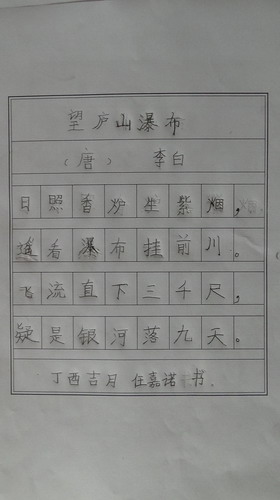 望庐山瀑布
（唐） 李白
日照香炉生紫烟，
遥看瀑布挂前川。
飞流直下三千尺，
疑是银河落九天。
丁酉吉月 任嘉诺 书.